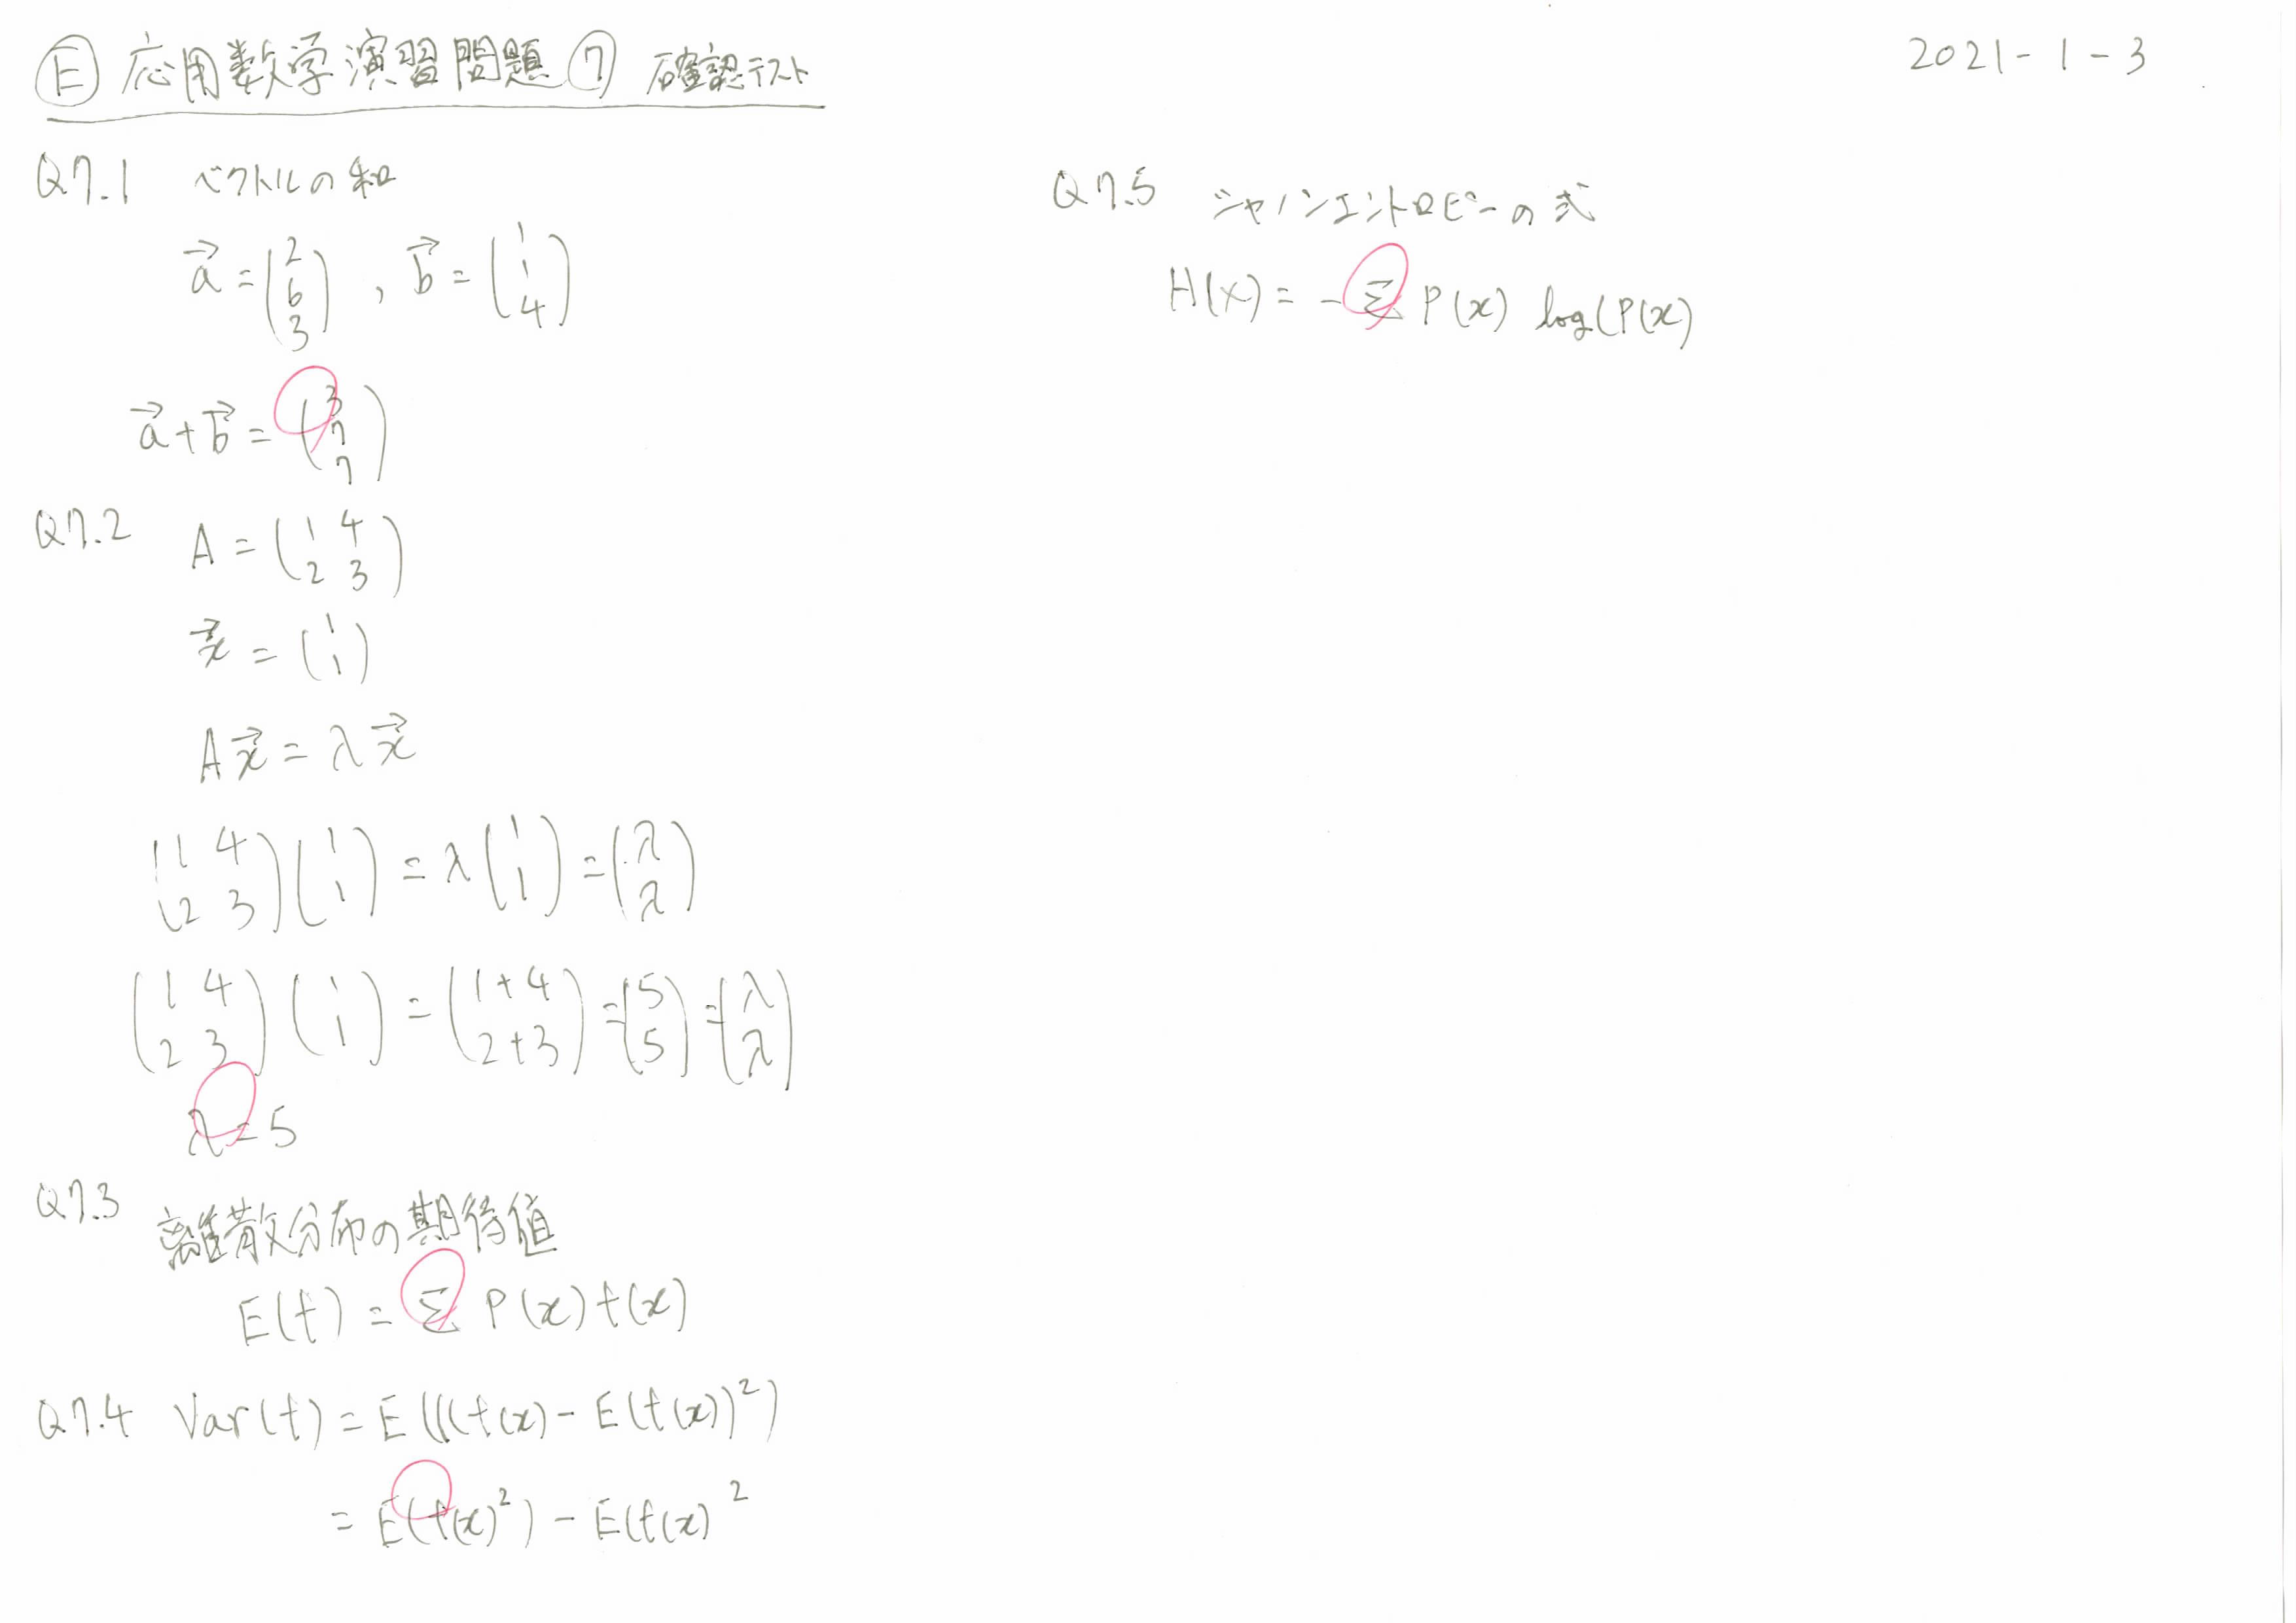 Ⓔ 応用数学演習問題⑦ 確認テスト
2021-1-3
Q7.1 ベクトルの和
→a = (2 6 3), →b = (1 1 4)
→a + →b = (3 7 7)
Q7.2 A = (1 4 2 3)
→x = (1 1)
A→x = λ→x
(1 4 2 3)(1 1) = λ(1 1) = (λ λ)
(1 4 2 3)(1 1) = (1+4 2+3) = (5 5) = (λ λ)
λ = 5
Q7.3 離散分布の期待値
E(f) = Σ P(x) f(x)
Q7.4 Var(f) = E(((f(x) - E(f(x))²)
= E(f(x)²) - E(f(x)²
Q7.5 シャノンエントロピーの式
H(x) = -Σ P(x) log(P(x)